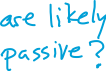 are likely
passive?